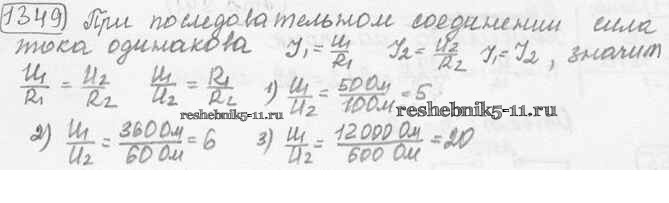 1349) При последовательном соединении сила
тока одинакова I₁ = U₁/R₁ I₂ = U₂/R₂ I₁ = I₂, значит
U₁/R₁ = U₂/R₂ U₁/U₂ = R₁/R₂ 1) U₁/U₂ = 50 Ом/10 Ом = 5
reshebnik5-11.ru
reshebnik5-11.ru
2) U₁/U₂ = 360 Ом/60 Ом = 6 3) U₁/U₂ = 12000 Ом/600 Ом = 20